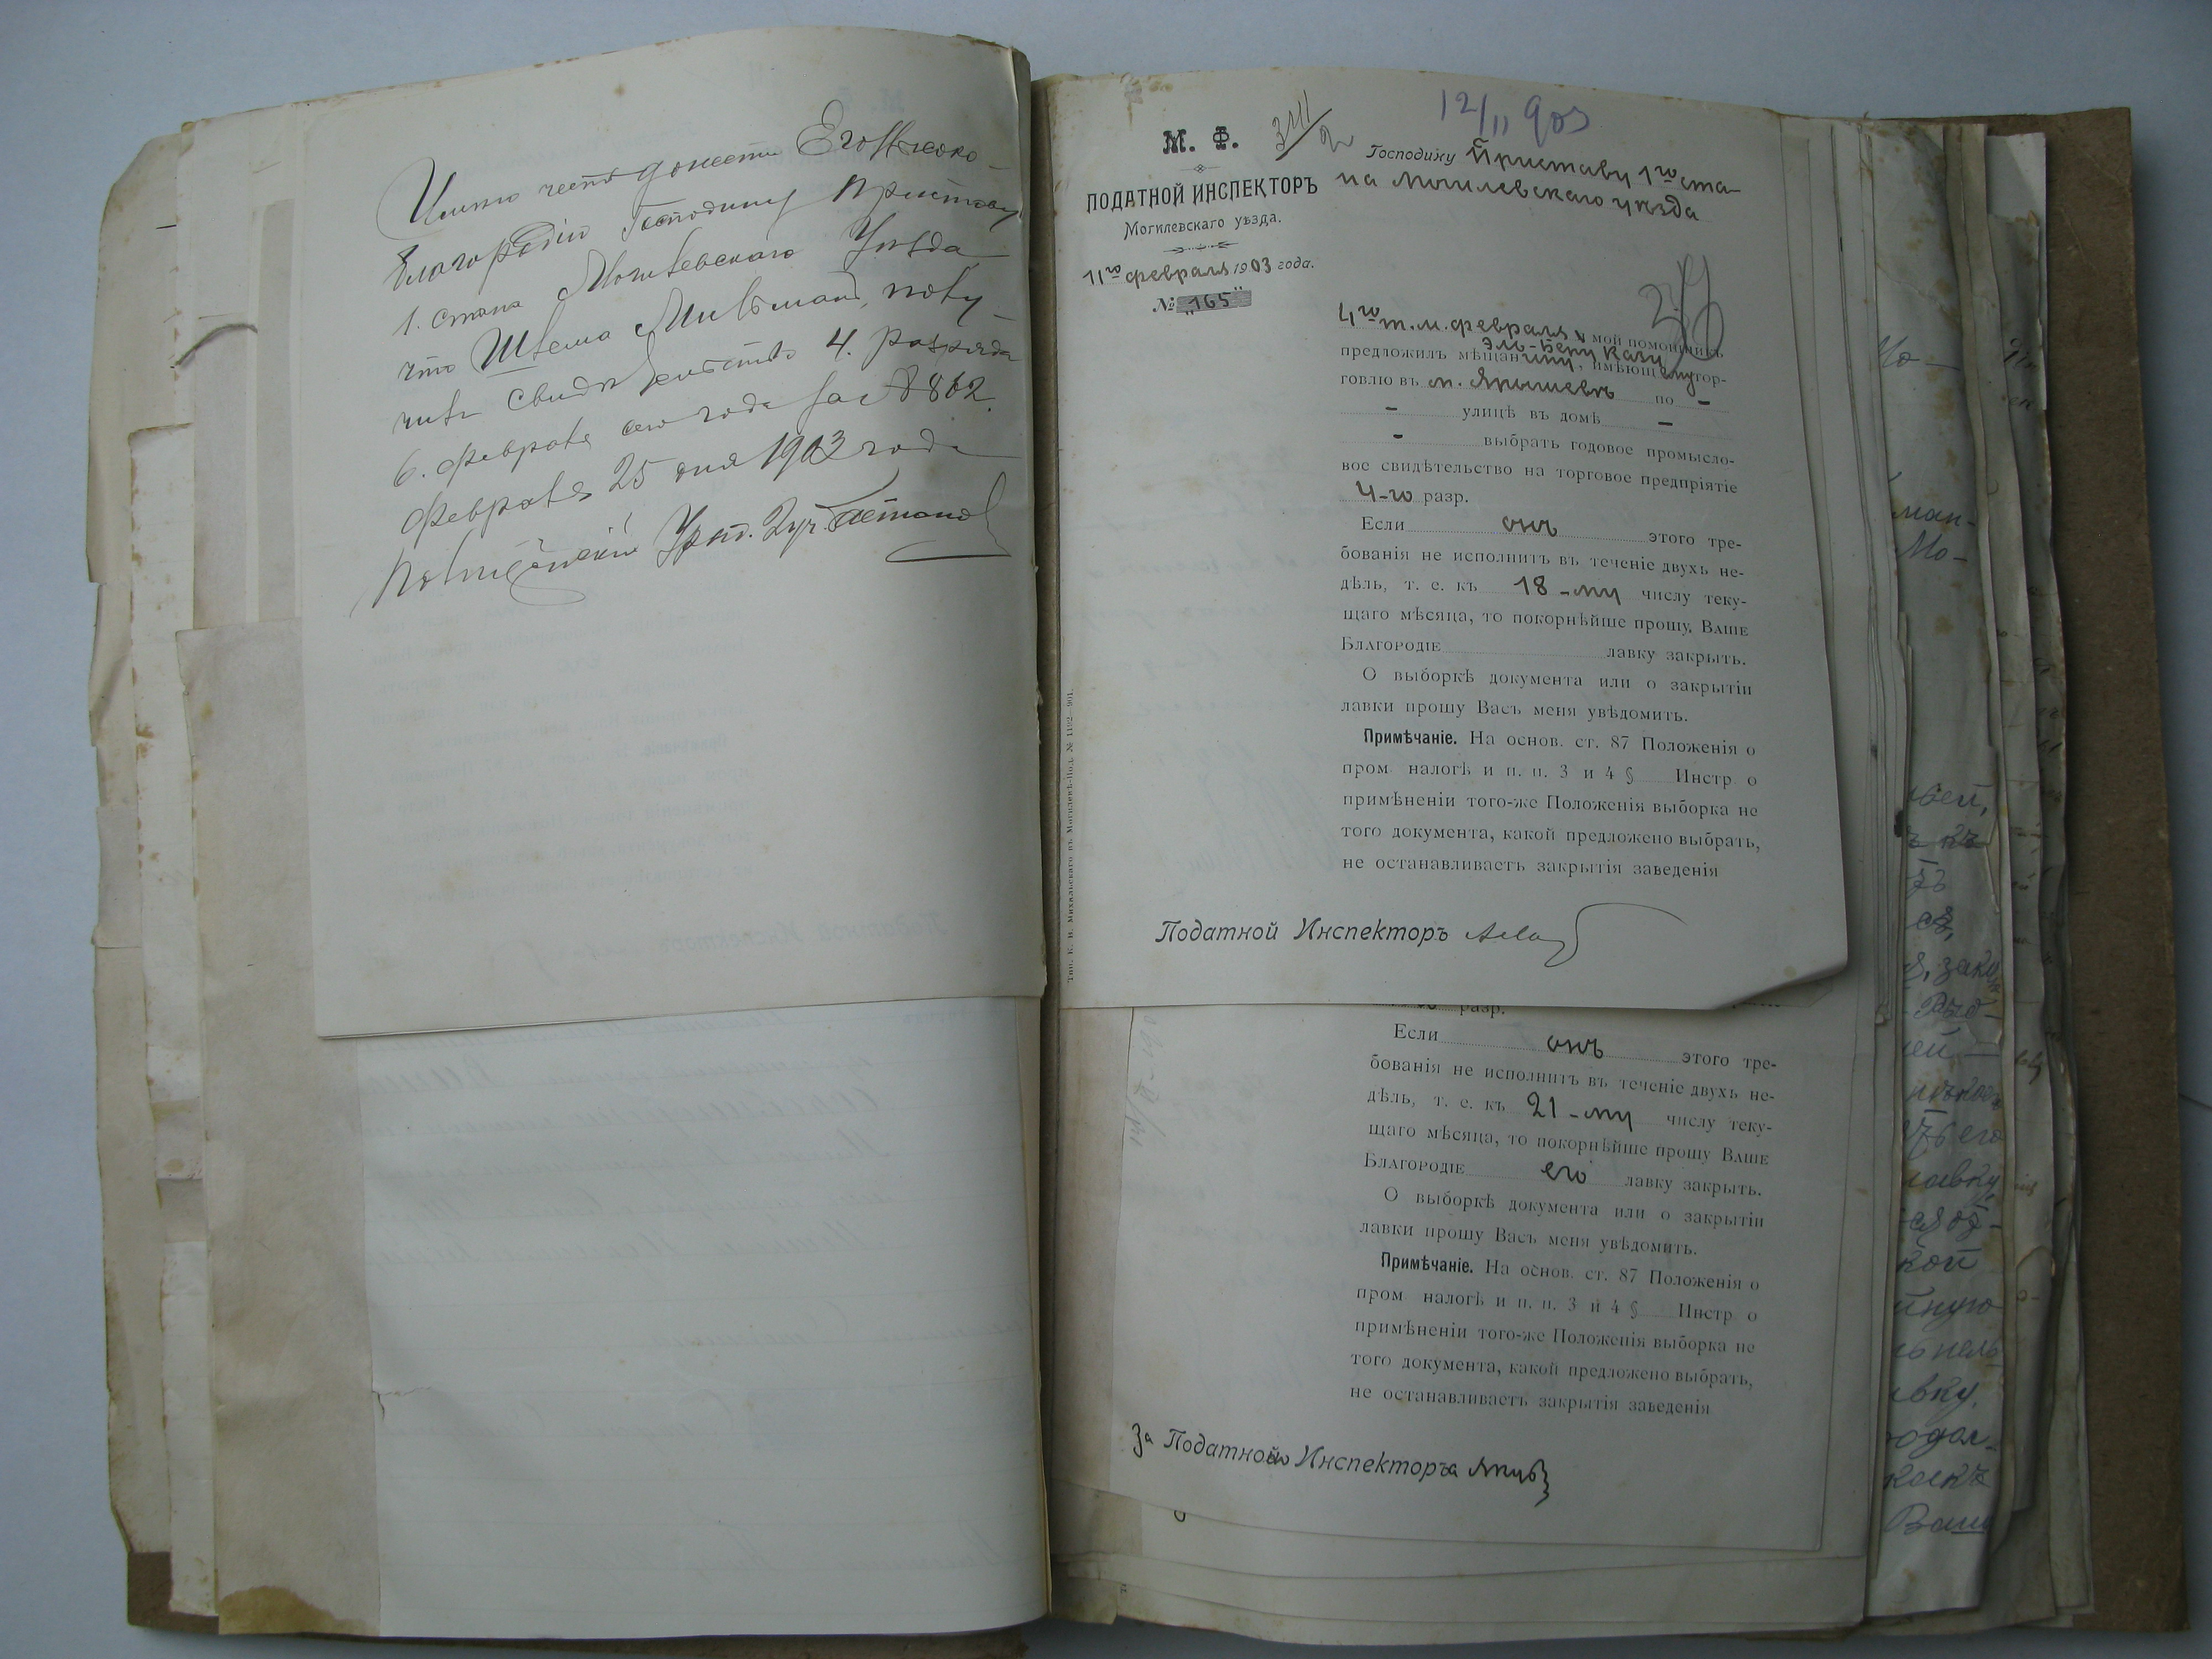 Имею честь донести Его Высоко-
благородію Господину Приставу
1. стана Могилевскаго Уѣзда
что Шлема Мильман, полу-
чил Свидѣтельство 4. разряда
6. февраля сего года за № 862.
Февраля 25 дня 1903 года
Полицейскій Уряд. 2 уч.
12/II 903
М. Ф.
ПОДАТНОЙ ИНСПЕКТОРЪ
Могилевскаго уѣзда.
11го февраля 1903 года.
№ „165"
Господину Приставу 1го ста-
на Могилевскаго уѣзда
4го т. м. февраля мой помощникъ
предложилъ мѣщанину, имѣющему тор-
говлю въ м. Ярышевѣ по -
- улицѣ въ домѣ -
- выбрать годовое промысло-
вое свидѣтельство на торговое предпріятіе
4-го разр.
Если онъ этого тре-
бованія не исполнитъ въ теченіе двухъ не-
дѣль, т. е. къ 18-му числу теку-
щаго мѣсяца, то покорнѣйше прошу, ВАШЕ
БЛАГОРОДІЕ лавку закрыть.
О выборкѣ документа или о закрытіи
лавки прошу Васъ меня увѣдомить.
Примѣчаніе. На основ. ст. 87 Положенія о
пром налогѣ и п. п. 3 и 4 § Инстр о
примѣненіи того-же Положенія выборка не
того документа, какой предложено выбрать,
не останавливаетъ закрытія заведенія
Податной Инспекторъ
Тип. К. И. Михальскаго въ Могилевѣ-Под. № 1192-901.
разр.
Если онъ этого тре-
бованія не исполнитъ въ теченіе двухъ не-
дѣль, т. е. къ 21-му числу теку-
щаго мѣсяца, то покорнѣйше прошу ВАШЕ
БЛАГОРОДІЕ его лавку закрыть.
О выборкѣ документа или о закрытіи
лавки прошу Васъ меня увѣдомить.
Примѣчаніе. На основ. ст. 87 Положенія о
пром налогѣ и п. п. 3 и 4 § Инстр о
примѣненіи того-же Положенія выборка не
того документа, какой предложено выбрать,
не останавливаетъ закрытія заведенія
За Податного Инспектора